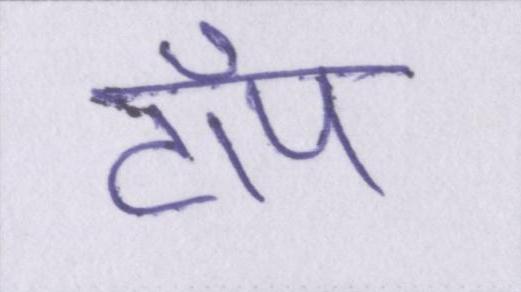 टॉप